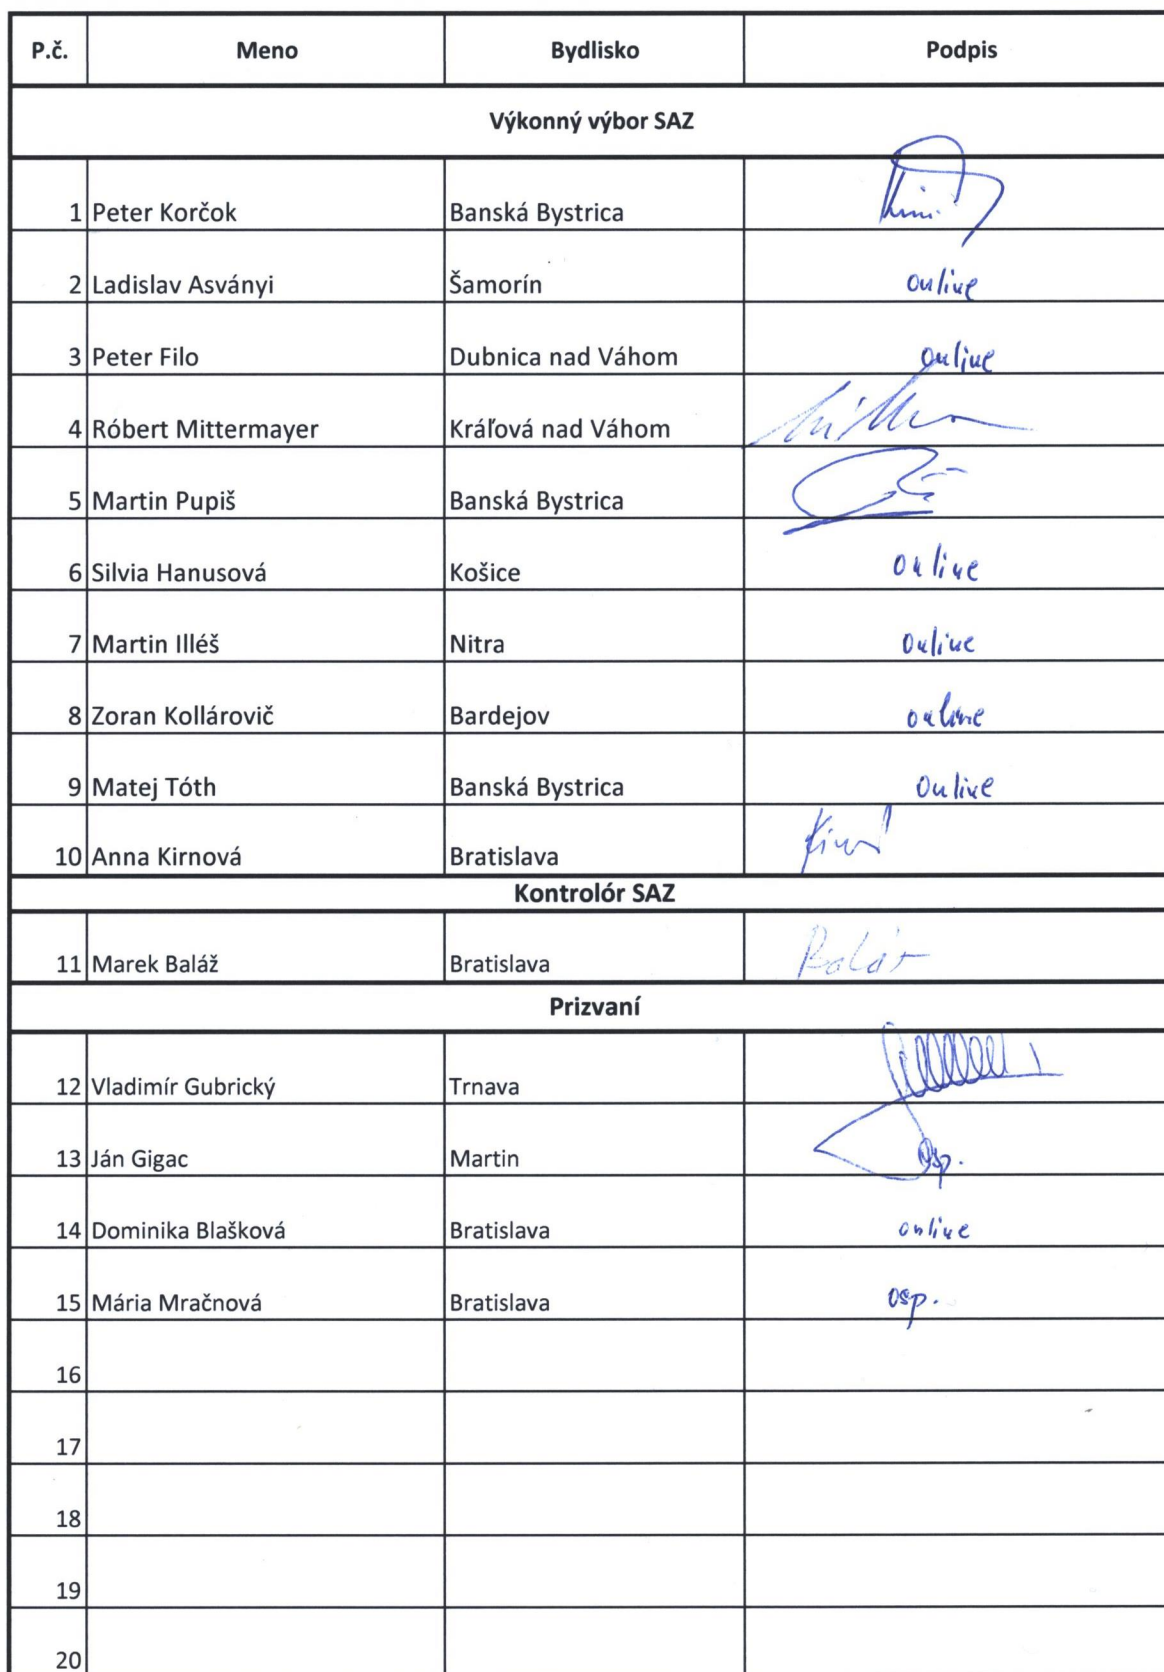 P.č. Meno Bydlisko Podpis
Výkonný výbor SAZ
1 Peter Korčok Banská Bystrica
2 Ladislav Asványi Šamorín online
3 Peter Filo Dubnica nad Váhom online
4 Róbert Mittermayer Kráľová nad Váhom
5 Martin Pupiš Banská Bystrica
6 Silvia Hanusová Košice online
7 Martin Illéš Nitra online
8 Zoran Kollárovič Bardejov online
9 Matej Tóth Banská Bystrica online
10 Anna Kirnová Bratislava
Kontrolór SAZ
11 Marek Baláž Bratislava
Prizvaní
12 Vladimír Gubrický Trnava
13 Ján Gigac Martin osp.
14 Dominika Blašková Bratislava online
15 Mária Mračnová Bratislava osp.
16
17
18
19
20